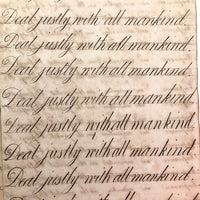 Deal justly with all mankind.
Deal justly with all mankind.
Deal justly with all mankind.
Deal justly with all mankind.
Deal justly with all mankind.
Deal justly with all mankind.
Deal justly with all mankind.